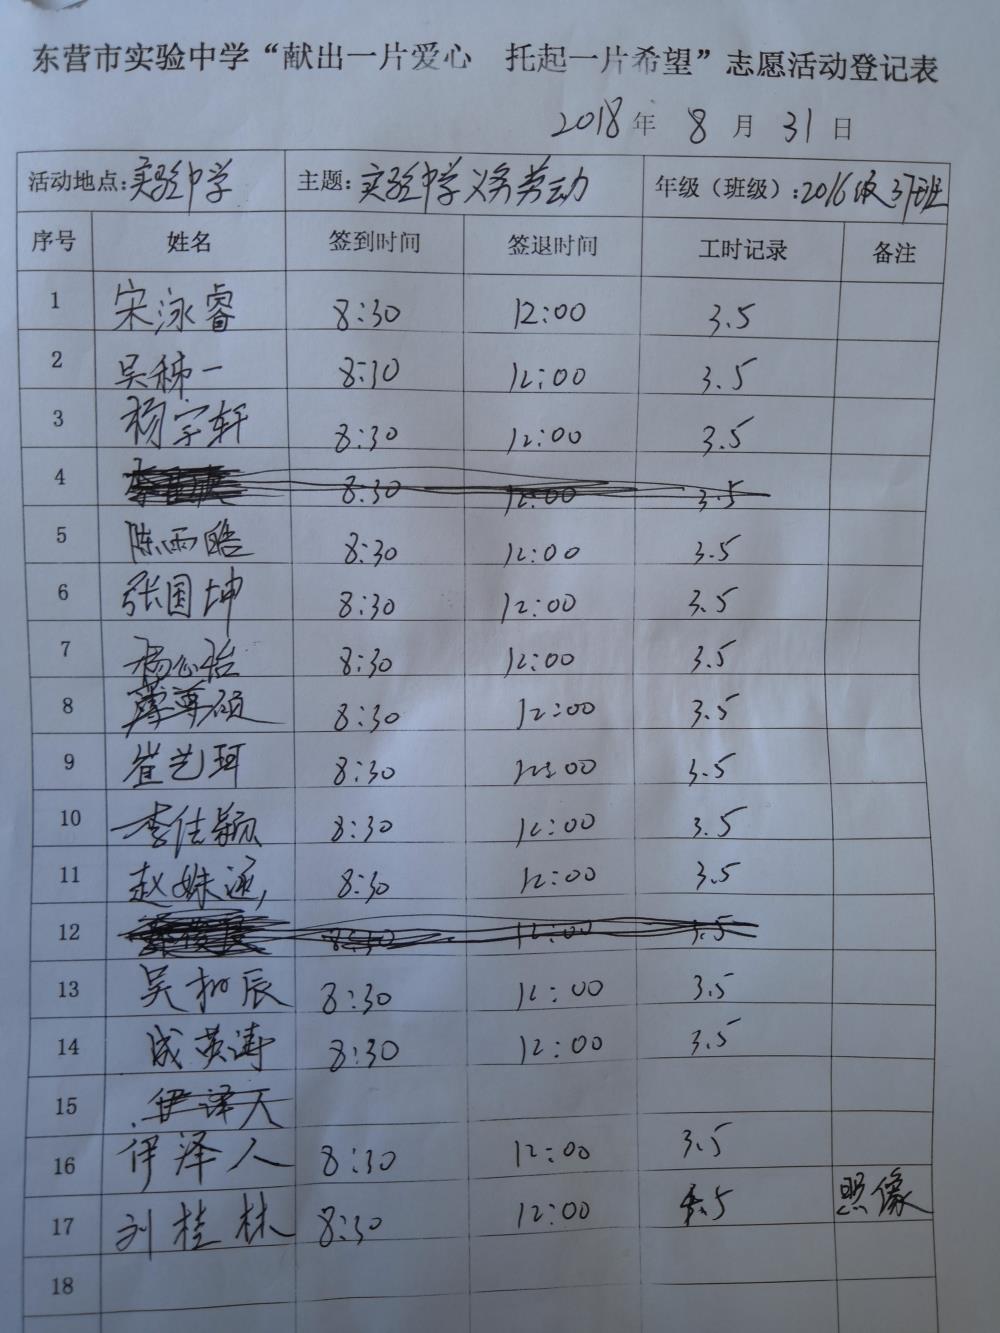 东营市实验中学“献出一片爱心 托起一片希望”志愿活动登记表
2018年 8 月 31 日
活动地点:实验中学 主题:实验中学义务劳动 年级（班级）:2016级37班
序号 姓名 签到时间 签退时间 工时记录 备注
1 宋泳睿 8:30 12:00 3.5
2 吴秭一 8:30 12:00 3.5
3 杨宇轩 8:30 12:00 3.5
4 8:30 12:00 3.5
5 陈雨皓 8:30 12:00 3.5
6 张国坤 8:30 12:00 3.5
7 杨心怡 8:30 12:00 3.5
8 8:30 12:00 3.5
9 崔艺珂 8:30 12:00 3.5
10 李佳颖 8:30 12:00 3.5
11 赵姝涵 8:30 12:00 3.5
12 8:30 12:00 3.5
13 吴 辰 8:30 12:00 3.5
14 成英涛 8:30 12:00 3.5
15 伊译人
16 伊泽人 8:30 12:00 3.5
17 刘桂林 8:30 12:00 .5 照像
18